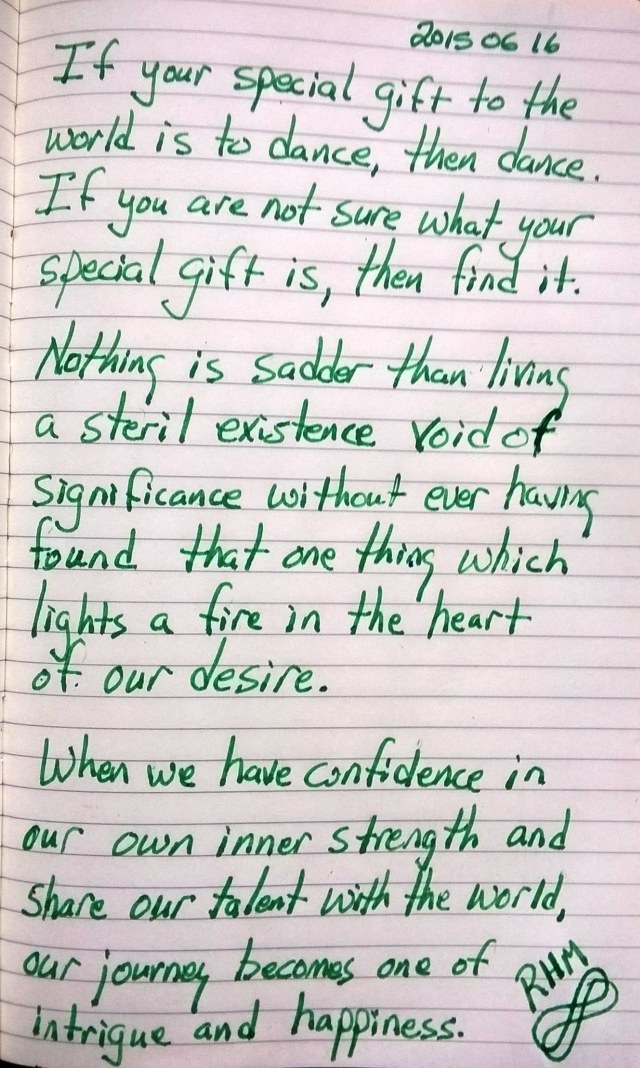 2015 06 16
If your special gift to the
world is to dance, then dance.
If you are not sure what your
special gift is, then find it.
Nothing is sadder than living
a steril existence void of
significance without ever having
found that one thing which
lights a fire in the heart
of our desire.
When we have confidence in
our own inner strength and
share our talent with the world,
our journey becomes one of
intrigue and happiness.
RHM